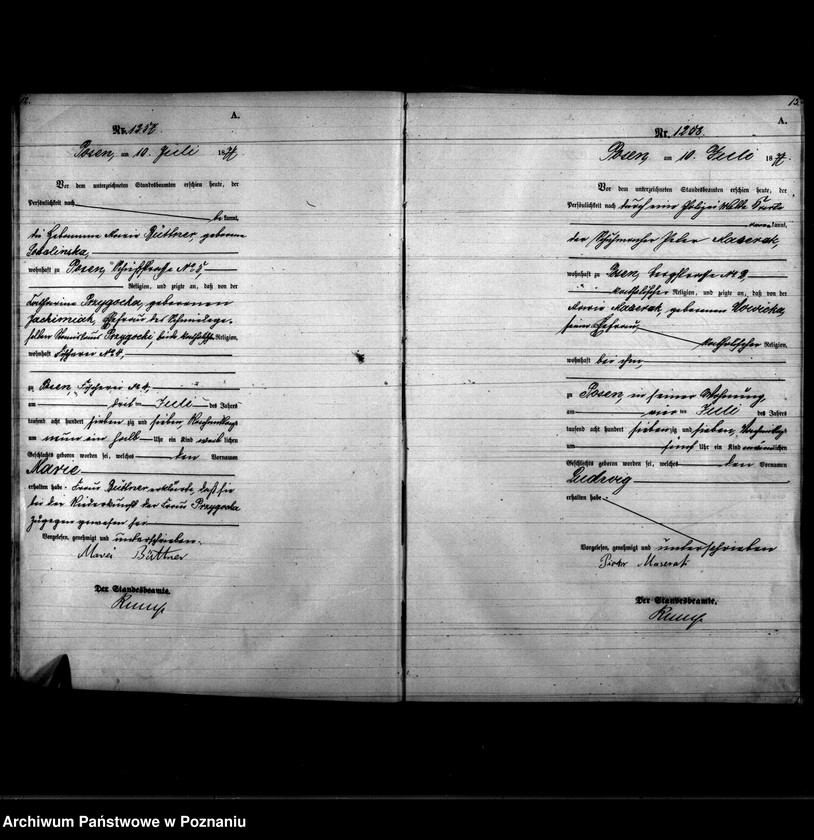 A.
Nr. 1257
Posen, am 10. Juli 1877.
Vor dem unterzeichneten Standesbeamten erschien heute, der
Persönlichkeit nach
bekannt,
die Hebamme Marie Büttner, geborene
wohnhaft zu Posen, Schifferstraße No 5,
Religion, und zeigte an, daß von der
Catharina Przygocka, geborenen
Jachimiak, Ehefrau des Schmiedege-
sellen Stanislaus Przygocki, beide katholischer Religion,
wohnhaft Fischerei No 4,
zu Posen, Fischerei No 4,
am drei ten Juli des Jahres
tausend acht hundert siebenzig und sieben Nachmittags
um neun ein halb Uhr ein Kind weiblichen
Geschlechts geboren worden sei, welches den Vornamen
Marie
erhalten habe. Frau Büttner erklärte, daß sie
bei der Niederkunft der Frau Przygocka
zugegen gewesen sei
Vorgelesen, genehmigt und unterschrieben.
Marie Büttner
Der Standesbeamte.
15.
A.
Nr. 1258.
Posen, am 10. Juli 1877.
Vor dem unterzeichneten Standesbeamten erschien heute, der
Persönlichkeit nach durch eine Polizei
kannt,
der Schuhmacher Peter
wohnhaft zu Posen, Bergstraße No 2
katholischer Religion, und zeigte an, daß von der
Marie geborenen
seiner Ehefrau,
katholischer Religion,
wohnhaft bei ihm,
zu Posen, in seiner Wohnung
am vier ten Juli des Jahres
tausend acht hundert siebenzig und sieben, Nachmittags
um fünf Uhr ein Kind männlichen
Geschlechts geboren worden sei, welches den Vornamen
Ludwig
erhalten habe.
Vorgelesen, genehmigt und unterschrieben
Piotr
Der Standesbeamte.
Archiwum Państwowe w Poznaniu